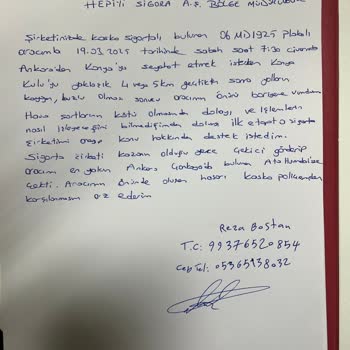 HEPİYİ SİGORA A.Ş. BÖLGE MÜDÜRLÜĞÜNE
Şirketinizde kasko sigortalı bulunan 06 MJD 925 Plakalı
aracımla 19.03.2025 tarihinde sabah saat 7:30 civarında
Ankaradan Konya'ya seyahat etmek isteken Konya
Kulu'yu yaklaşık 4 veya 5km geçtikten sonra yolların
kaygan, buzlu olması sonucu aracımın önünü bariyere vurdum
Hava şartlarının kötü olmasından dolayı ve işlemlerin
nasıl işleyeceğini bilmediğimden dolayı ilk etapta sigorta
şirketimi arayıp konu hakkından destek istedim.
Sigorta şirketi kazanın olduğu gece çekici gönderip
aracımı en yakın Ankara Çankayada bulunan Ata Hundai'ye
çekti. Aracımın önünde oluşan hasarı kasko poliçemden
karşılanmasını arz ederim
Reza Bostan
T.C: 99376520854
Cep Tel: 05365938032